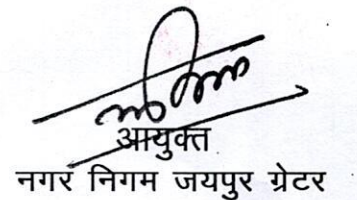 आयुक्त
नगर निगम जयपुर ग्रेटर